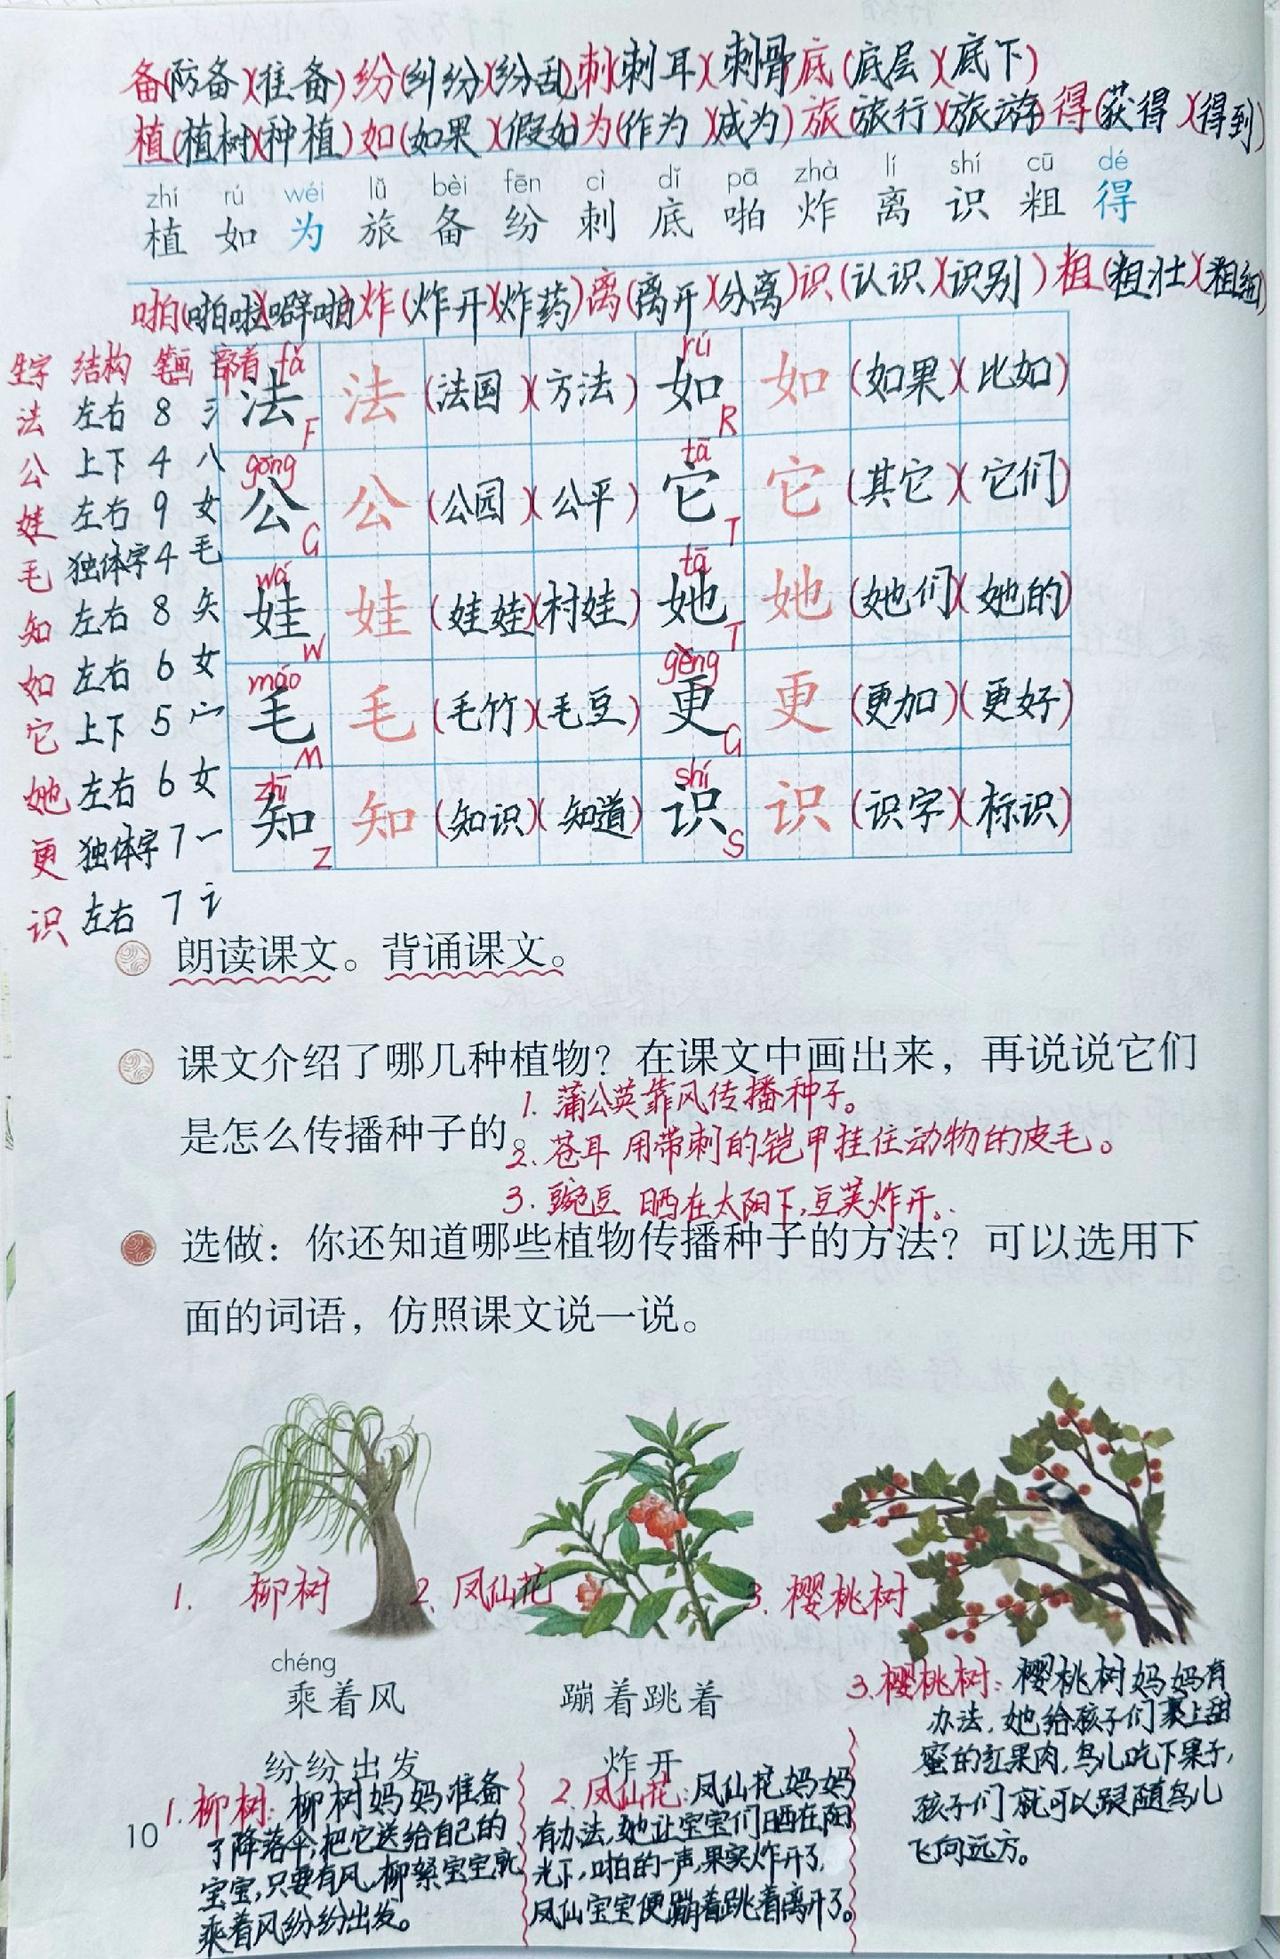 备(防备)(准备)纷(纠纷)(纷乱)刺(刺耳)(刺骨)底(底层)(底下)
植(植树)(种植)如(如果)(假如)为(作为)(成为)旅(旅行)(旅游)得(获得)(得到)
zhí rú wéi lǚ bèi fēn cì dǐ pā zhà lí shí cū dé
植 如 为 旅 备 纷 刺 底 啪 炸 离 识 粗 得
啪(啪啦)(噼啪)炸(炸开)(炸药)离(离开)(分离)识(认识)(识别)粗(粗壮)(粗细)
生字 结构 笔画 部首
法 左右 8 氵
公 上下 4 八
娃 左右 9 女
毛 独体字 4 毛
知 左右 8 矢
如 左右 6 女
它 上下 5 宀
她 左右 6 女
更 独体字 7 一
识 左右 7 讠
fǎ rú
法 F 法 (法国)(方法) 如 R 如 (如果)(比如)
gōng tā
公 G 公 (公园)(公平) 它 T 它 (其它)(它们)
wá tā
娃 W 娃 (娃娃)(村娃) 她 T 她 (她们)(她的)
máo gèng
毛 M 毛 (毛竹)(毛豆) 更 G 更 (更加)(更好)
zhī shí
知 Z 知 (知识)(知道) 识 S 识 (识字)(标识)
朗读课文。背诵课文。
课文介绍了哪几种植物？在课文中画出来，再说说它们
是怎么传播种子的。
1. 蒲公英靠风传播种子。
2. 苍耳 用带刺的铠甲挂住动物的皮毛。
3. 豌豆 晒在太阳下,豆荚炸开。
选做：你还知道哪些植物传播种子的方法？可以选用下
面的词语，仿照课文说一说。
1. 柳树 2. 凤仙花 3. 樱桃树
chéng
乘着风 蹦着跳着
纷纷出发 炸开
1. 柳树: 柳树妈妈准备
了降落伞,把它送给自己的
宝宝,只要有风,柳絮宝宝就
乘着风纷纷出发。
2. 凤仙花: 凤仙花妈妈
有办法,她让宝宝们晒在阳
光下,啪的一声,果实炸开了,
凤仙宝宝便蹦着跳着离开了。
3. 樱桃树: 樱桃树妈妈有
办法,她给孩子们裹上甜
蜜的红果肉,鸟儿吃下果子,
孩子们就可以跟随鸟儿
飞向远方。
10